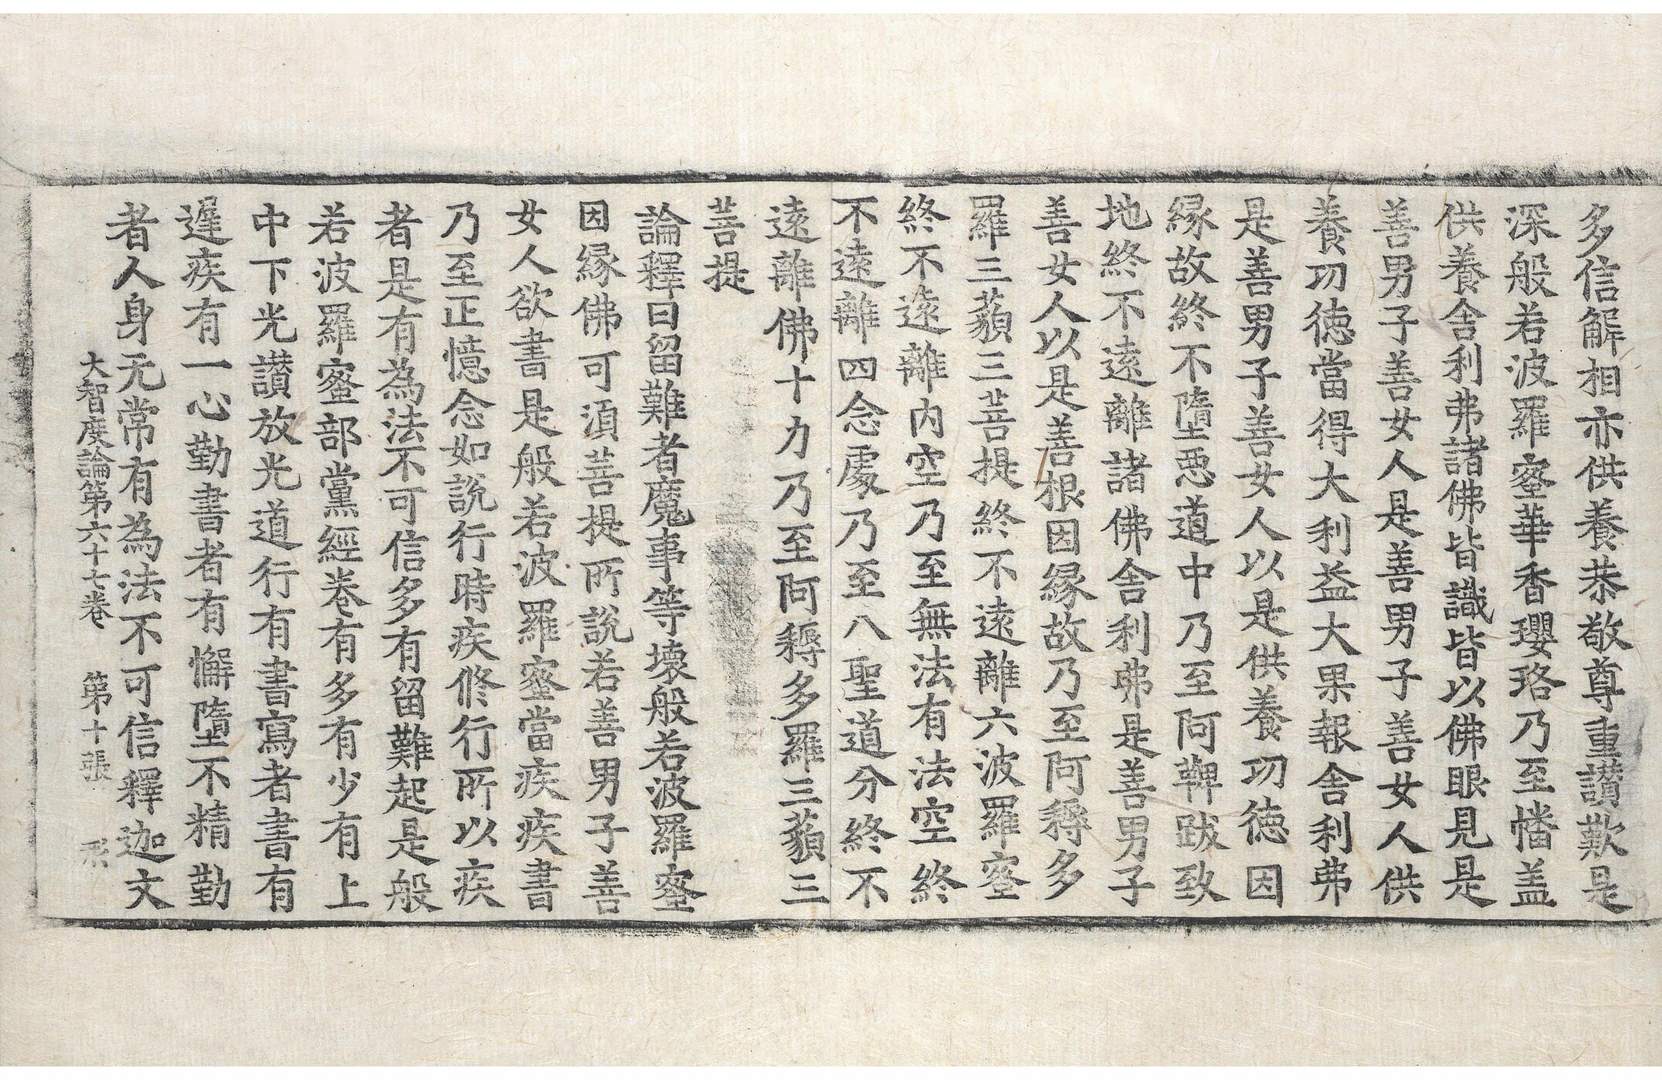 多信解相亦供養恭敬尊重讃歎是
深般若波羅蜜華香瓔珞乃至幡盖
供養舎利弗諸佛皆識皆以佛眼見是
善男子善女人是善男子善女人供
養功徳當得大利益大果報舎利弗
是善男子善女人以是供養功徳因
縁故終不墮惡道中乃至阿鞞跋致
地終不遠離諸佛舎利弗是善男子
善女人以是善根因縁故乃至阿耨多
羅三藐三菩提終不遠離六波羅蜜
終不遠離内空乃至無法有法空終
不遠離四念處乃至八聖道分終不
遠離佛十力乃至阿耨多羅三藐三
菩提
論釋曰留難者魔事等壞般若波羅蜜
因縁佛可湏菩提所說若善男子善
女人欲書是般若波羅蜜當疾疾書
乃至正憶念如說行時疾修行所以疾
者是有為法不可信多有留難起是般
若波羅蜜部黨經卷有多有少有上
中下光讃放光道行有書寫者書有
遲疾有一心勤書者有懈墮不精勤
者人身无常有為法不可信釋迦文
大智度論第六十七卷 第十張 形